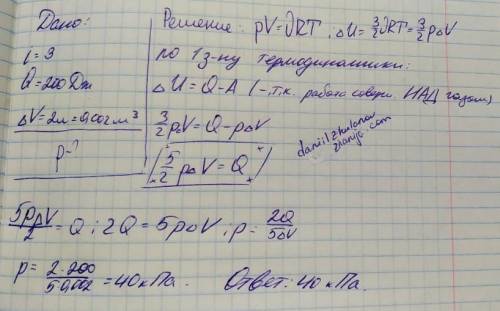 Дано:
i = 3
Q = 200 Дж
ΔV = 2л = 0,002 м³
p - ?
Решение: pV = νRT, ΔU = 3/2 νRT = 3/2 pΔV
по 1 з-ну термодинамики:
ΔU = Q - A (-, т.к. работа соверш. НАД газом)
3/2 pΔV = Q - pΔV
5/2 pΔV = Q
5pΔV/2 = Q; 2Q = 5pΔV; p = 2Q/5ΔV
p = 2·200/5·0,002 = 40 кПа. Ответ: 40 кПа.